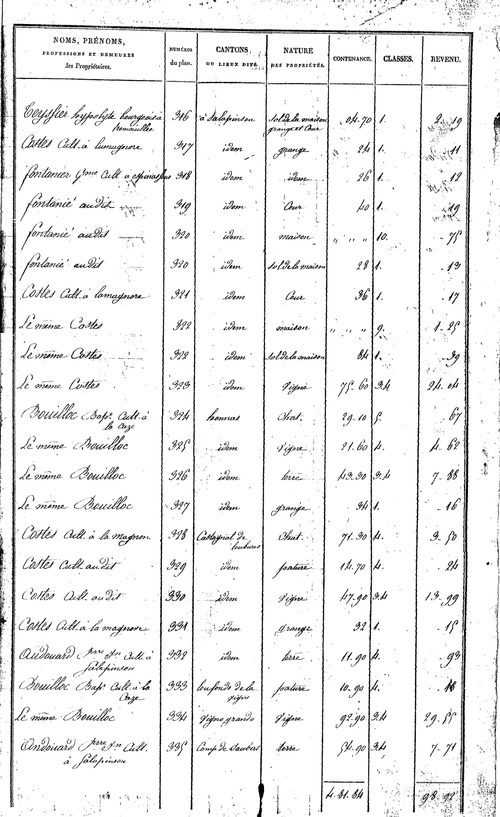 NOMS, PRÉNOMS, PROFESSIONS ET DEMEURES des Propriétaires. NUMÉROS du plan. CANTONS OU LIEUX DITS. NATURE DES PROPRIÉTÉS. CONTENANCE. CLASSES. REVENU.
Teyssier hyppolyte bourgeois à 316 à Salapinson sol de la maison 04.70 1. 2. 19
grange et Cour
Costes Cult. à lamagnore 317 idem grange " 24 1. " 11
fontanier Gme Cult. à 318 idem idem 26 1. " 12
fontanié audit 319 idem Cour 40 1. " 19
fontanié audit 320 idem maison " " " 10. " 75
fontanié audit 320 idem sol de la maison 28 1. " 13
Costes Cult. à lamagnore 321 idem Cour 36 1. " 17
Le même Costes 322 idem maison " " " 9. 1. 25
Le même Costes 322 idem sol de la maison 84 1. " 39
Le même Costes 323 idem Vigne 75. 60 3.4 24. 04
Bouilloc Bapt. Cult. à 324 Chat. 29. 10 5. 67
Le même Bouilloc 325 idem Vigne 21. 60 4. 4. 62
Le même Bouilloc 326 idem terre 43. 30 3.4 7. 88
Le même Bouilloc 327 idem grange 34 1. " 16
Costes Cult. à la magnore 328 Castagnal de Chat. 71. 30 4. 3. 50
Costes Cult. audit 329 idem pature 14. 70 4. " 24
Costes Cult. audit 330 idem Vigne 47. 90 3.4 13. 99
Costes Cult. à la magnore 331 idem grange " 32 1. " 15
Andouard pierre Jn Cult. à 332 idem terre 11. 90 4. " 93
Salapinson
Bouilloc Bapt Cult. à la 333 lou founds de la pature 10. 90 4. 18
vigne
Le même Bouilloc 334 Vigne grande Vigne 92. 90 3.4 29. 55
Andouard pierre Jn Cult. 335 Camp de terre 54. 90 3.4 7. 71
à Salapinson
4. 81. 84 98. 92